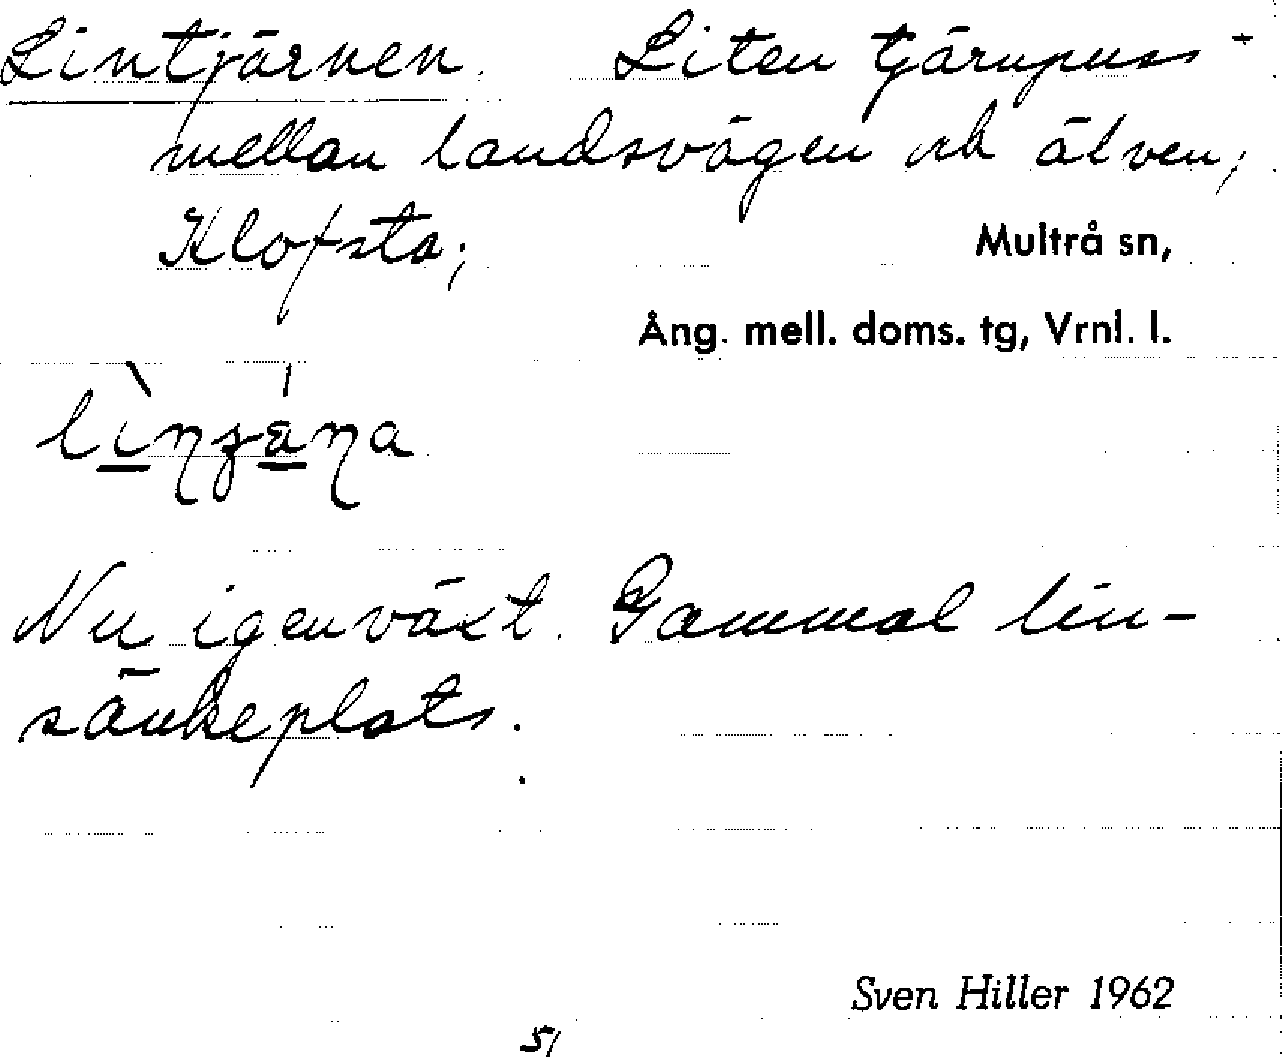 Lintjärnen. Liten tjärnpuss
mellan landsvägen och älven,
Klofsta; Multrå sn,
Ång. mell. doms. tg, Vrnl. l.
Nu igenväxt. Gammal lin-
sänkeplats.
Sven Hiller 1962
51